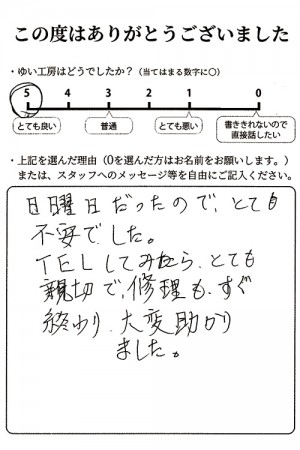 この度はありがとうございました
・ゆい工房はどうでしたか？（当てはまる数字に○）
5 4 3 2 1 0
とても良い 普通 とても悪い 書ききれないので
直接話したい
・上記を選んだ理由（0を選んだ方はお名前をお願いします。）
または、スタッフへのメッセージ等を自由にご記入ください。
日曜日だったので、とても
不安でした。
TELしてみたら、とても
親切で、修理も、すぐ
終わり、大変助かり
ました。